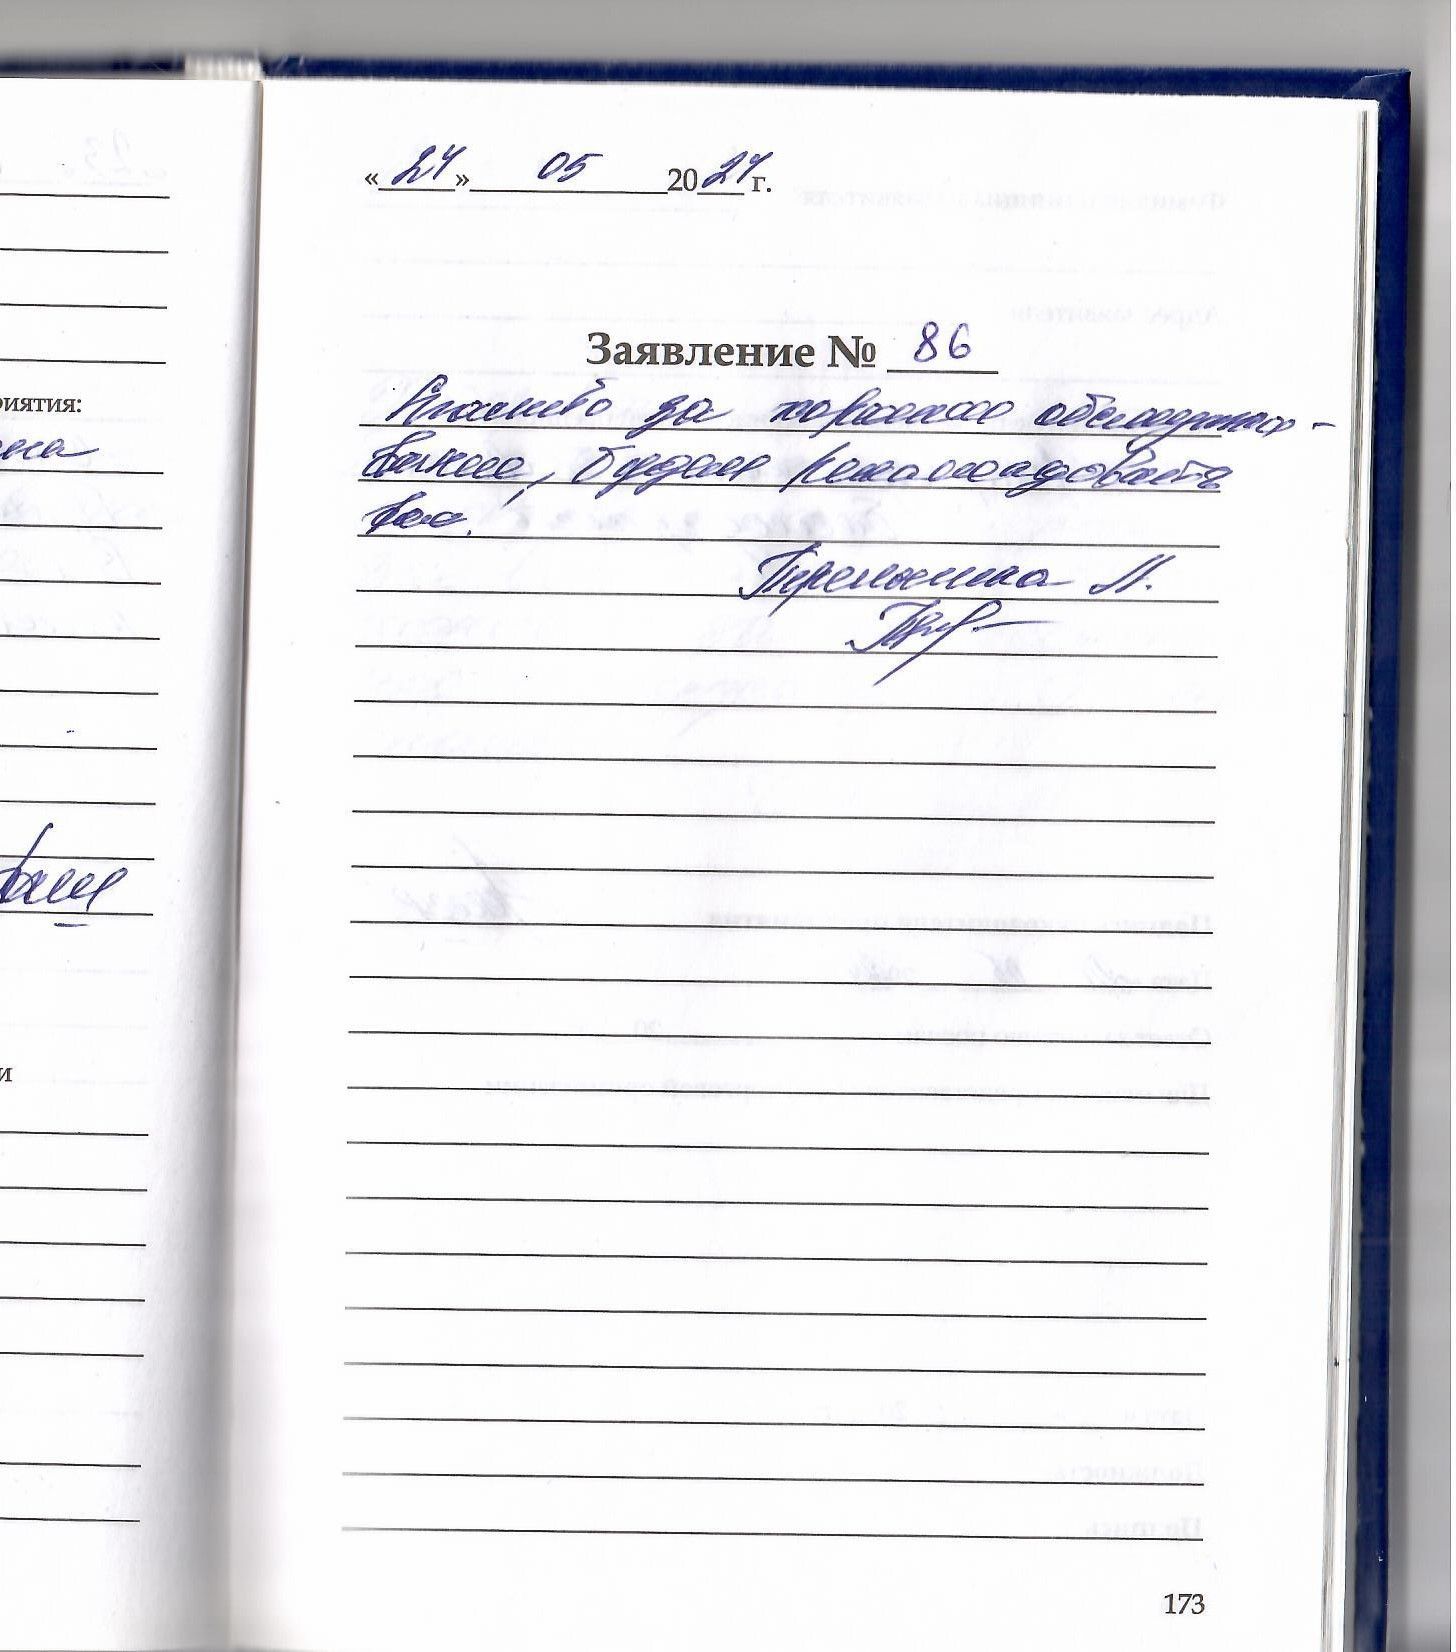 « 24 » 05 2024 г.
Заявление № 86
Спасибо за хорошее обслужи-
вание, будем рекомендовать
вас.
Л.
риятия:
и
173